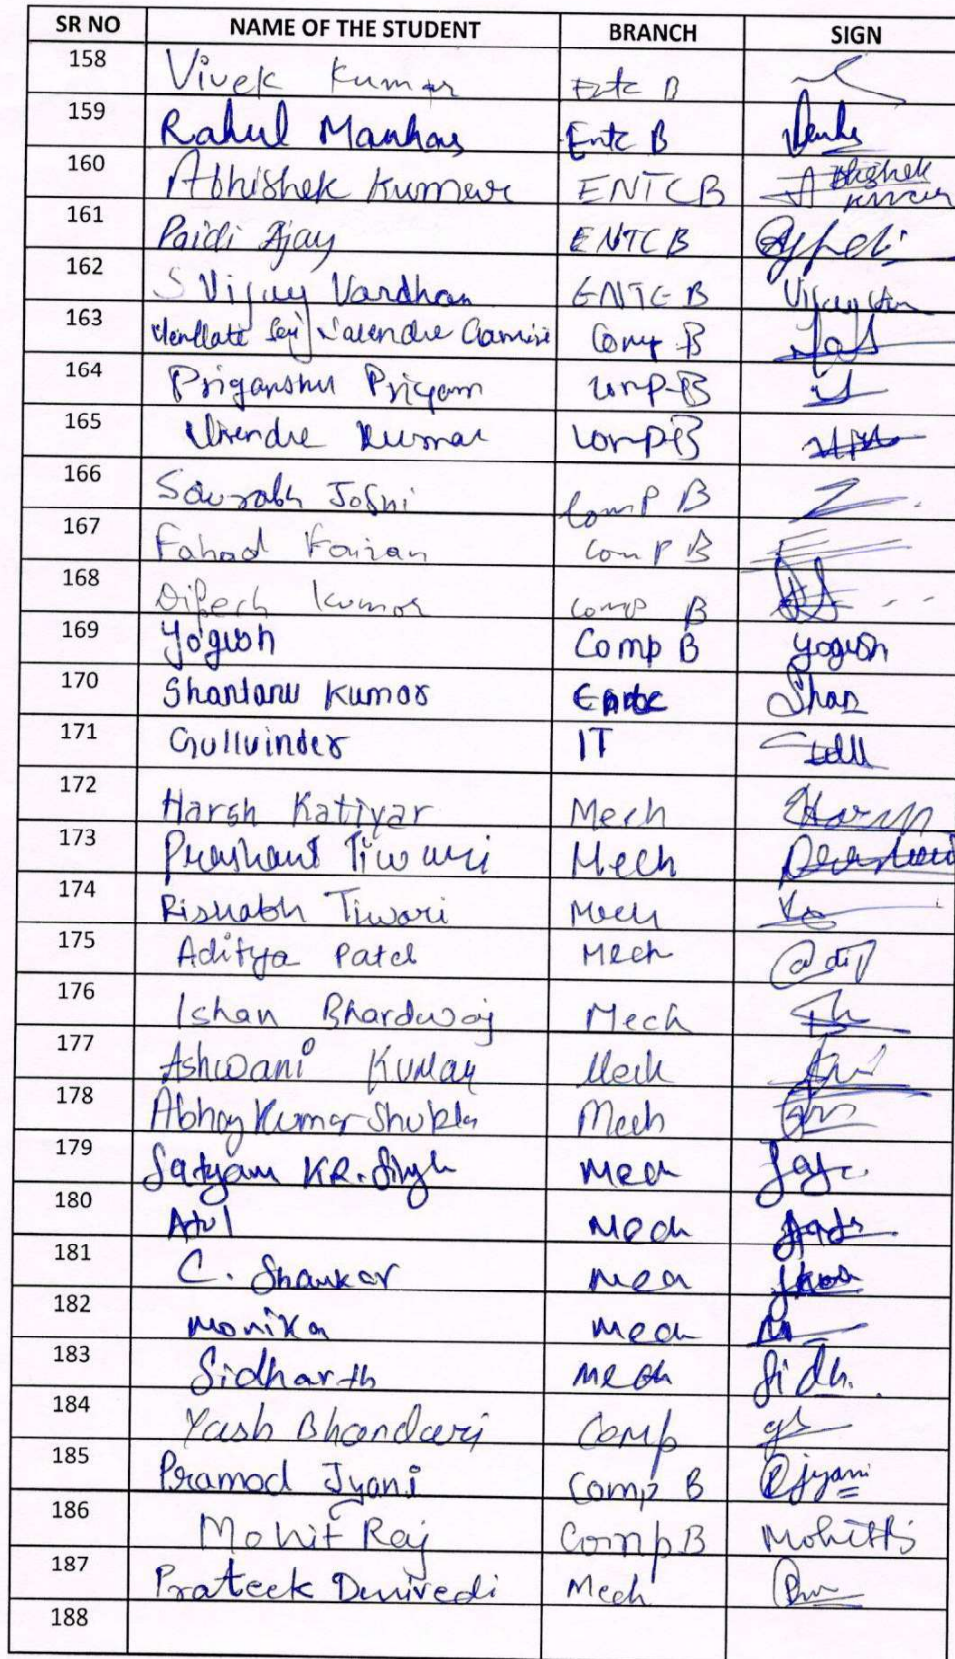 SR NO NAME OF THE STUDENT BRANCH SIGN
158 Vivek Kumar Entc B
159 Rahul Manhas Entc B
160 Abhishek Kumar ENTC B Abhishek Kumar
161 Paidi Ajay ENTC B
162 S Vijay Vardhan ENTC B
163 Comp B
164 Priyanshu Priyam Comp-B
165 Virendra Kumar Comp-B
166 Sourabh Joshi Comp B
167 Fahad Faizan Comp B
168 Dipesh Kumar Comp B
169 Yogesh Comp B Yogesh
170 Shantanu Kumar Entc Shan
171 Gulluinder IT
172 Harsh Katiyar Mech Harsh
173 Prashant Tiwari Mech
174 Rishabh Tiwari Mech
175 Aditya Patel Mech
176 Ishan Bhardwaj Mech
177 Ashwani Kumar Mech
178 Abhay Kumar Shukla Mech
179 Satyam KR. Singh Mech
180 Atul Mech
181 C. Shankar Mech
182 Monika Mech
183 Sidharth Mech Sidh.
184 Yash Bhandari Comp
185 Pramod Jyani Comp B Pjyani
186 Mohit Raj Comp B
187 Prateek Dwivedi Mech
188